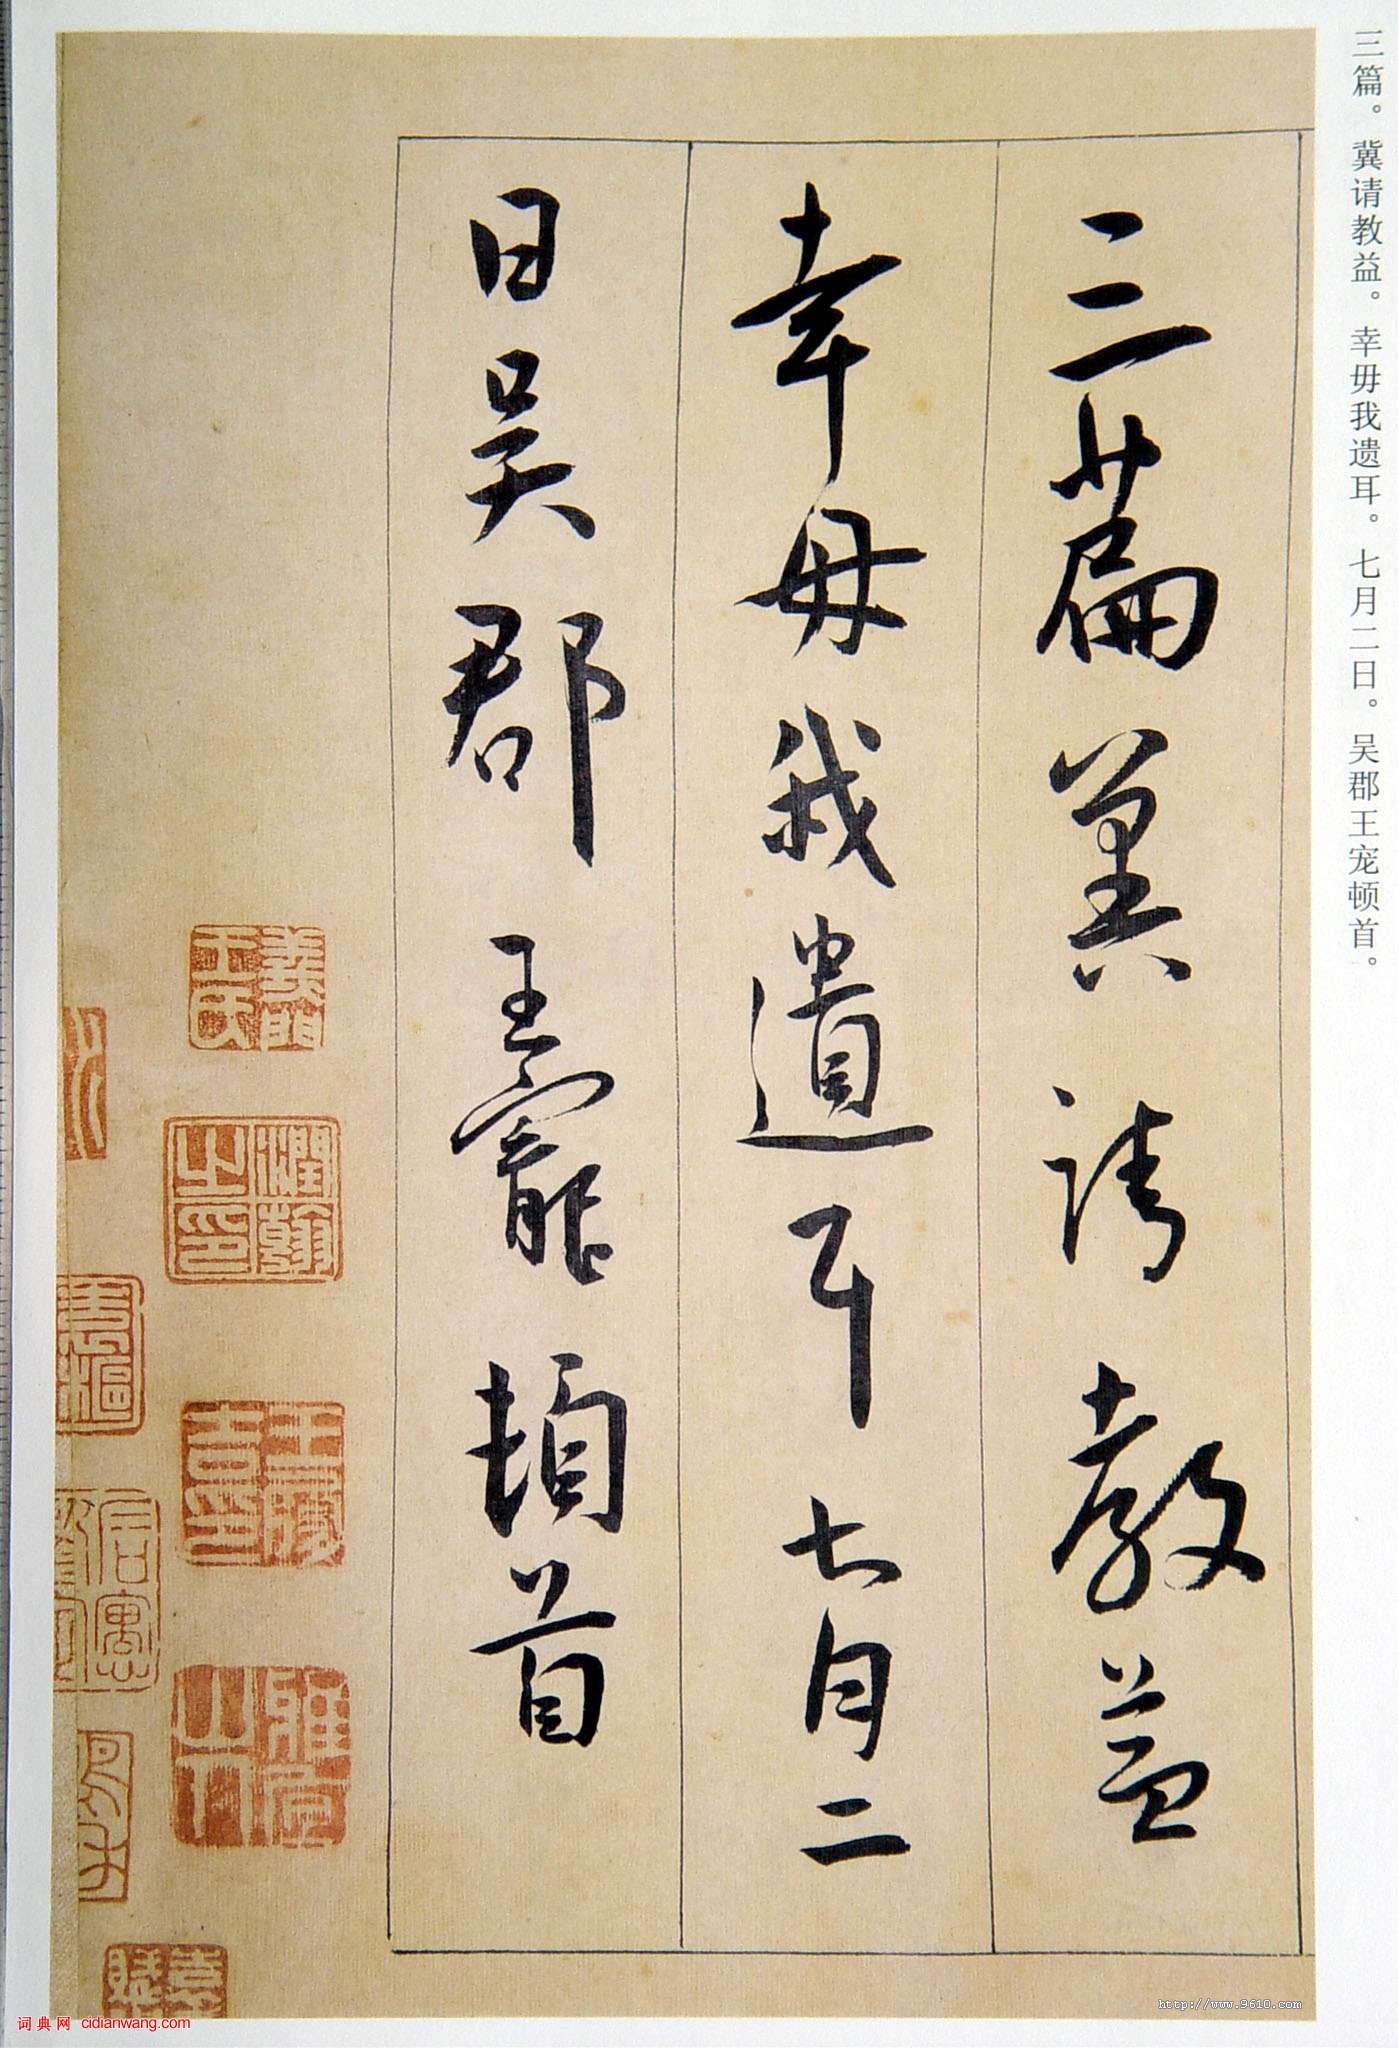 三篇。冀请教益。幸毋我遗耳。七月二日。吴郡王宠顿首。
三篇冀請教益
幸毋我遺耳七月二
日吴郡王寵頓首
義門
王氏
潤翰
之印
王
吉印
雅宜
山人
http://www.9610.com
词典网 cidianwang.com